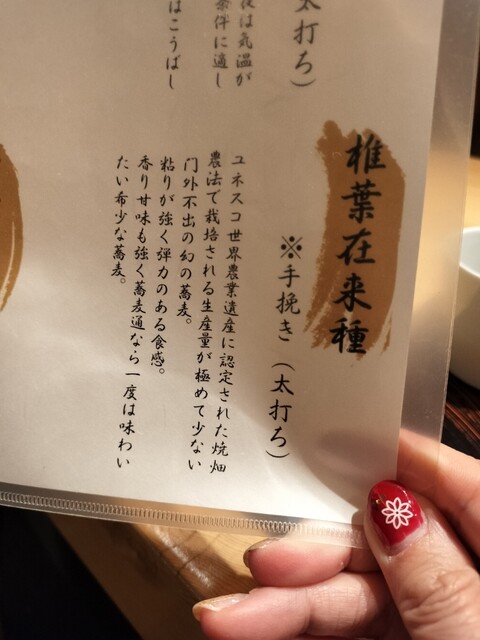 太打ろ）
夜は気温が
条件に適し
はこうばし
椎葉在来種
※手挽き（太打ろ）
ユネスコ世界農業遺産に認定された焼畑
農法で栽培される生産量が極めて少ない
門外不出の幻の蕎麦。
粘りが強く弾力のある食感。
香り甘味も強く蕎麦通なら一度は味わい
たい希少な蕎麦。